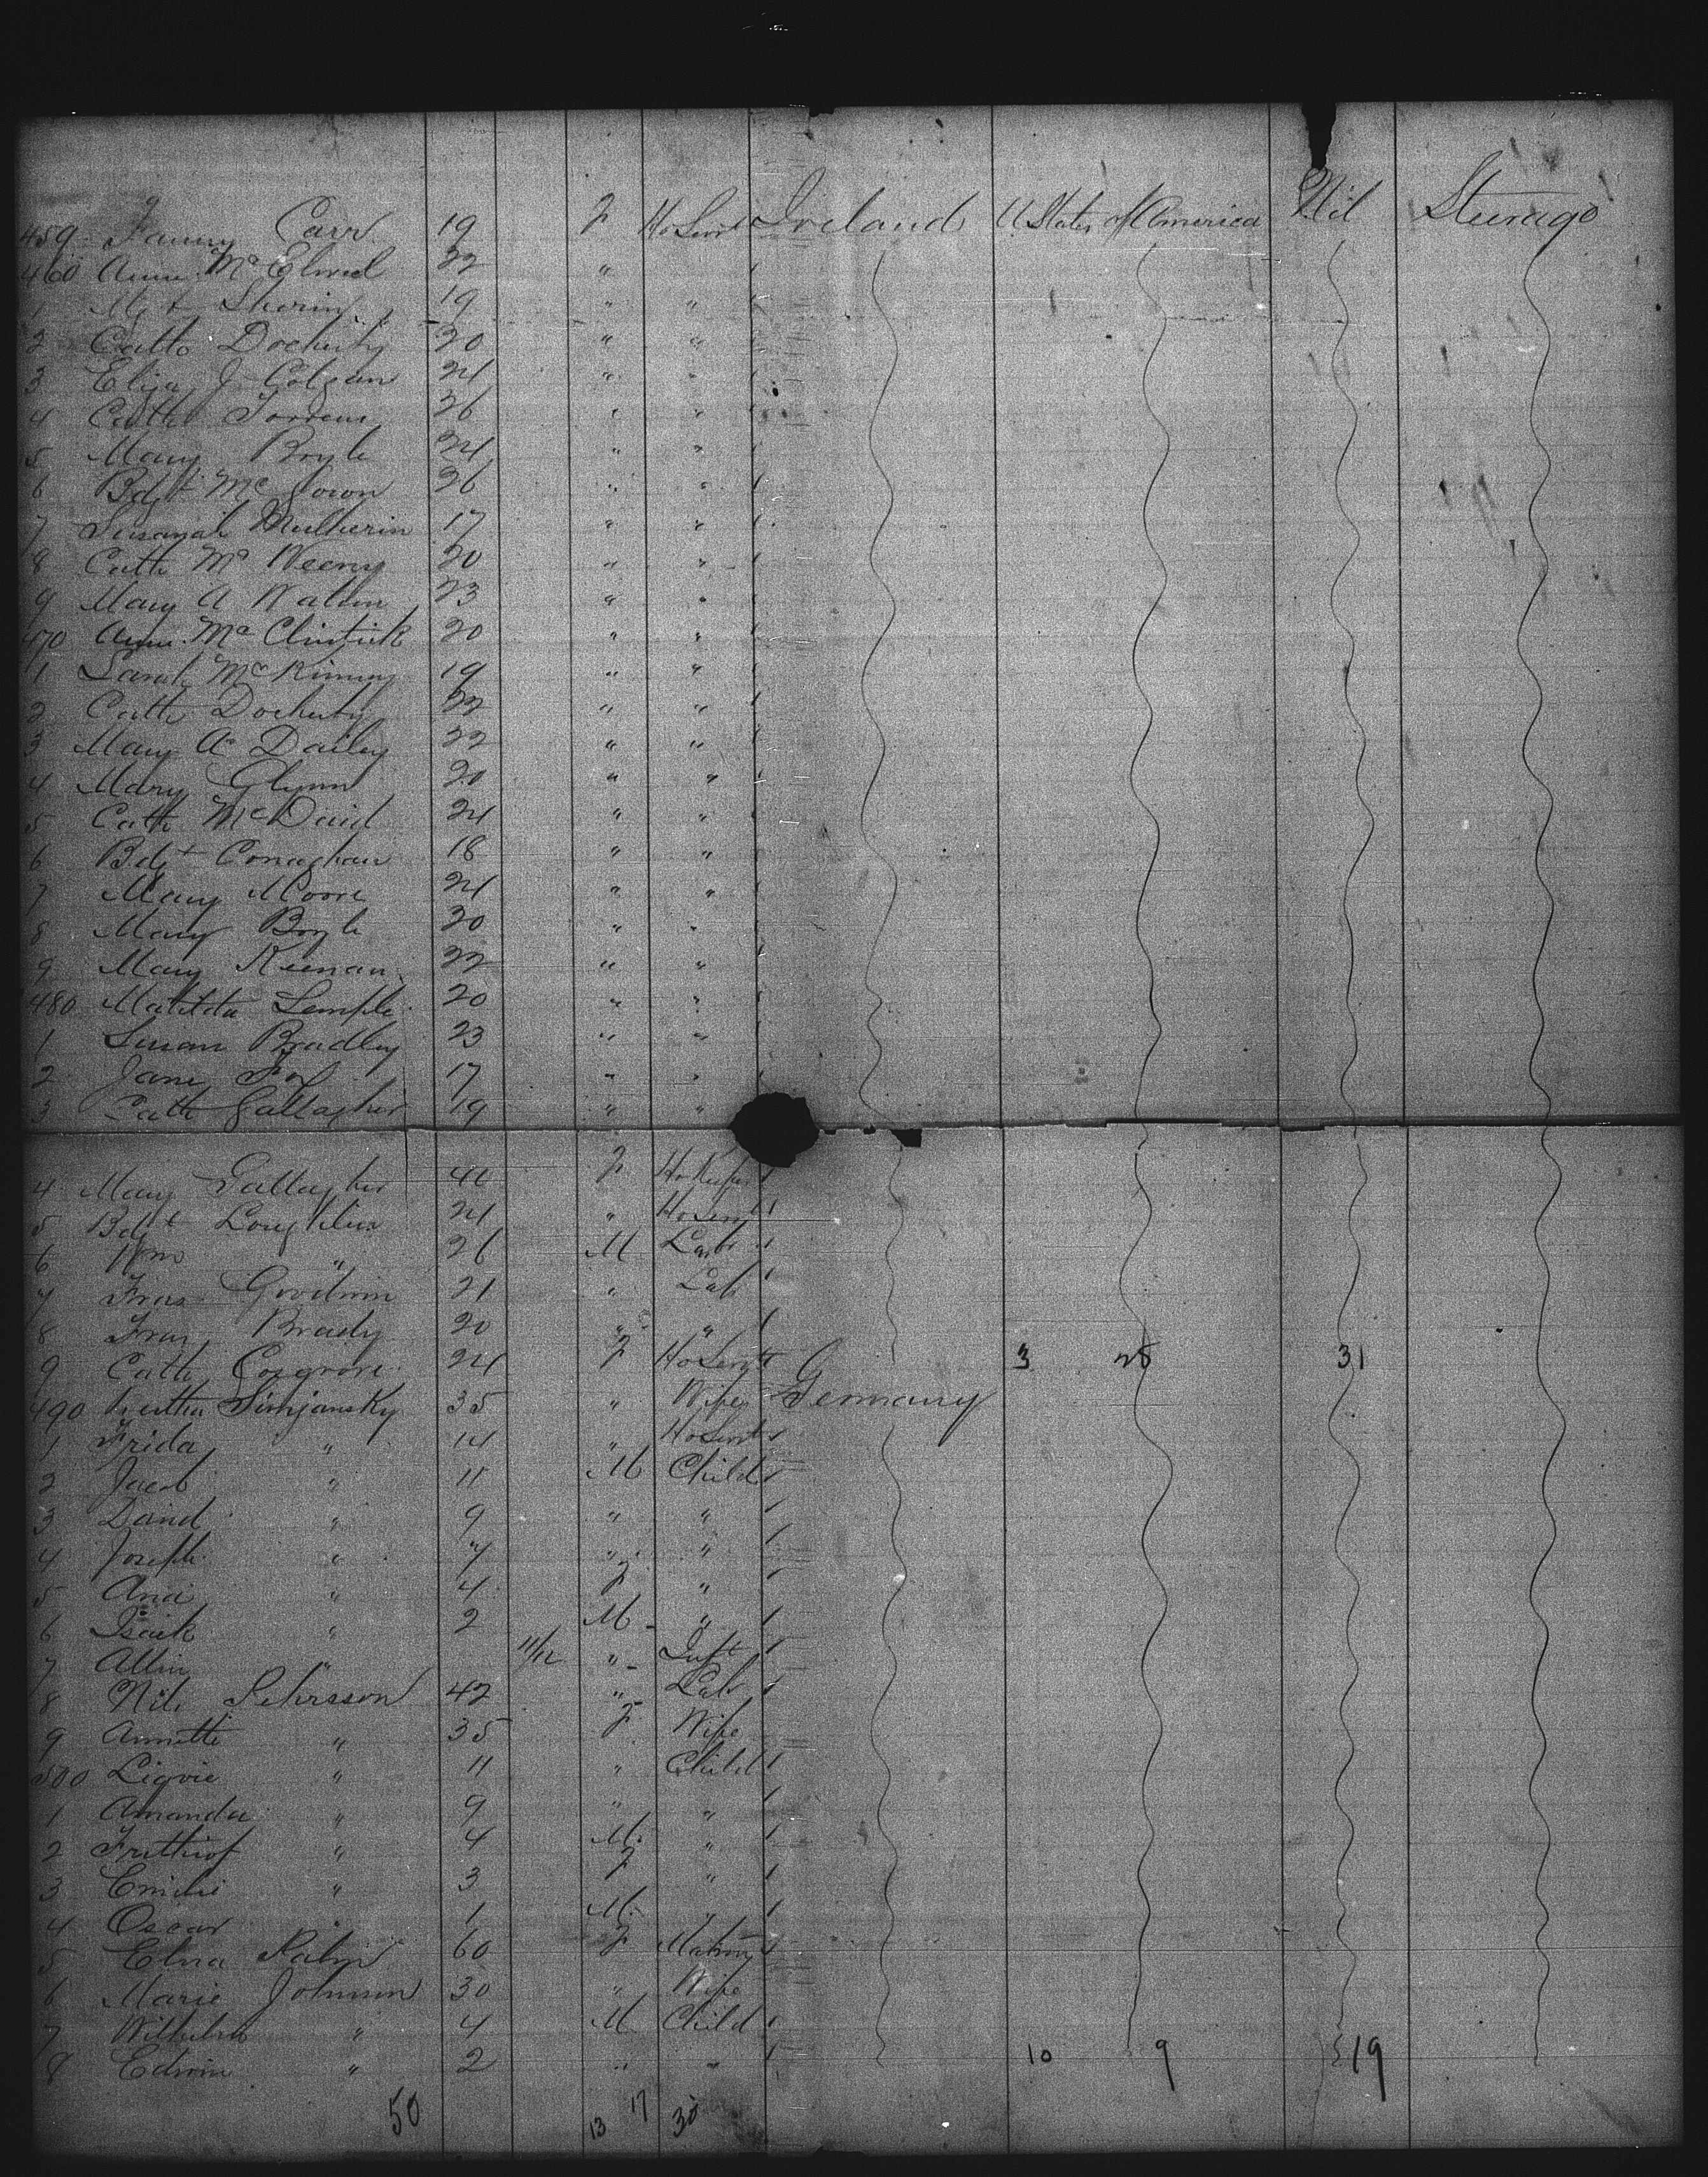 459 Fanny Carr 19 F Ho Servt Ireland U States of America Nil Steerage
460 Ann Mc Elwed 22 "
1 Mgt Sherin 19 " "
2 Cath Docherty 20 " "
3 Eliza J Colgan 24 " "
4 Cath 26 " "
5 Mary Boyle 24 " "
6 Bdgt Mc Gowan 26 " "
7 Susanah Mulherin 17 " "
8 Cath Mc Weeny 20 " "
9 Mary A Walton 23 " "
470 Ann Mc Clintick 20 " "
1 Sarah McKinney 19 " "
2 Cath Docherty 22 " "
3 Mary A Dailey 22 " "
4 Mary Glynn 20 " "
5 Cath McDaid 24 " "
6 Bdgt Conaghan 18 " "
7 Mary Moore 24 " "
8 Mary Boyle 20 " "
9 Mary Keenan 22 " "
480 Matilda Semple 20 " "
1 Susan Bradley 23 " "
2 Jane Fox 17 " "
3 Cath Gallagher 19 " "
4 Mary Gallagher 40 F Ho Keeper
5 Bdgt Loughlin 24 " Ho Servt
6 Wm " 26 M Labr
7 Fras Goodwin 21 " Lab
8 Fras Brady 20 " "
9 Cath Cosgrove 24 F Ho Servt 3 28 31
490 Simjansky 35 " Wife Germany
1 Frida " 14 " Ho Servt
2 Jacob " 11 M Child
3 David " 9 " "
4 Joseph " 7 " "
5 Ana " 4 F "
6 Isaik " 2 M "
7 " 11/12 " Inft
8 Nils Pehrsson 42 " Lab
9 Annette " 35 F Wife
500 " 11 " Child
1 Amanda " 9 " "
2 Frithiof " 4 M "
3 " 3 F "
4 Oscar " 1 M "
5 Elna Palm 60 F Matron
6 Marie Johnson 30 " Wife
7 Wilhelm " 4 M Child
8 Edwin " 2 " " 10 9 19
50 13 17 30